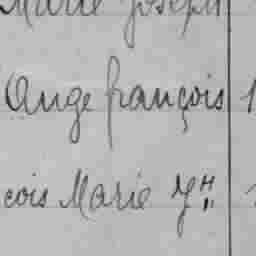 Marie Joseph
Ange françois 1
cois Marie Jh